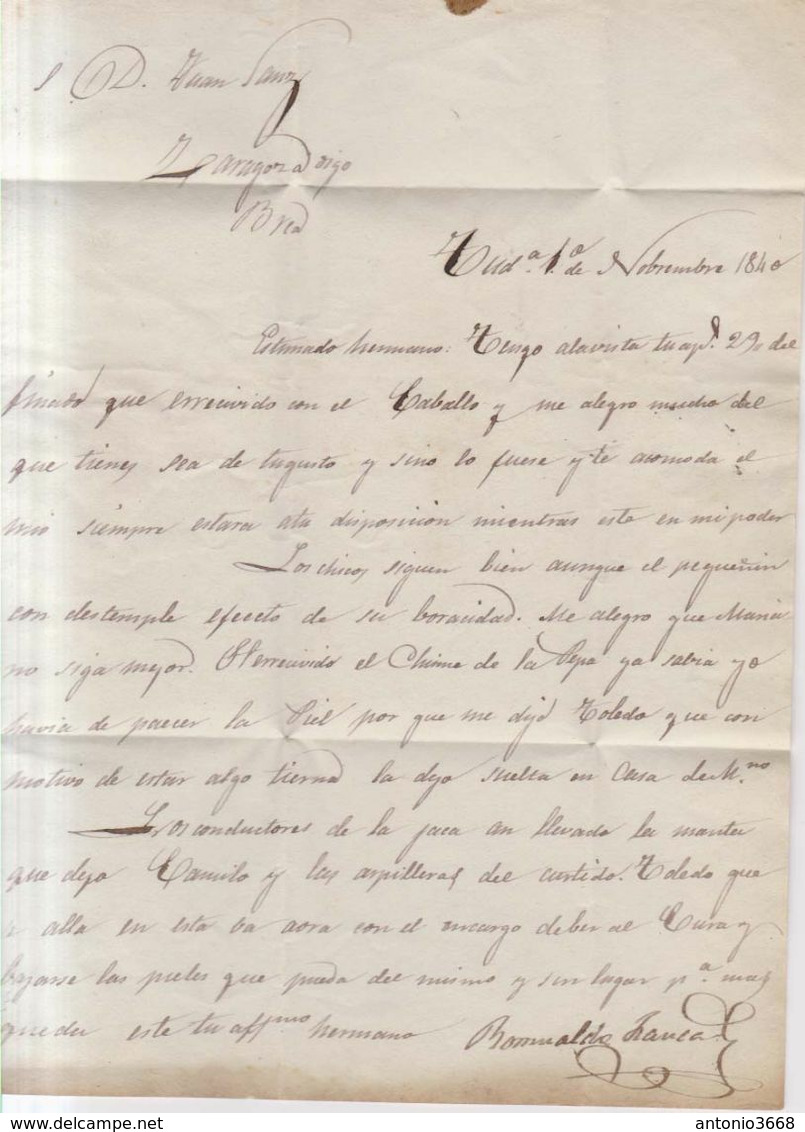 S D. Juan Sanz
Zaragoza digo
Brea
Tud.ª 1º de Nobiembre 1840
Estimado hermano: Tengo alavista tu ap.da 29 del
finado que errecivido con el Caballo y me alegro mucho del
que tienes sea de tugusto y sino lo fuese y te acomoda el
mio siempre estara atu disposicion mientras este en mi poder
Los chicos siguen bien aunque el pequeñin
con destemple efecto de su boracidad. Me alegro que Maria
no siga mejor. El errecivido el Chisme de la Pepa ya sabia yo
havia de paecer la Piel por que me dijo Toledo que con
motivo de estar algo tierna la dejo suelta en Casa de M.no
Los conductores de la jaca an llevado la manta
que dejo Camilo y las arpilleras del curtido. Toledo que
alla en esta ba aora con el encargo deber al Cura y
bajarse las pieles que pueda del mismo y sin lugar p.ª mas
queda este tu aff.mo hermano Romualdo Franca
antonio3668